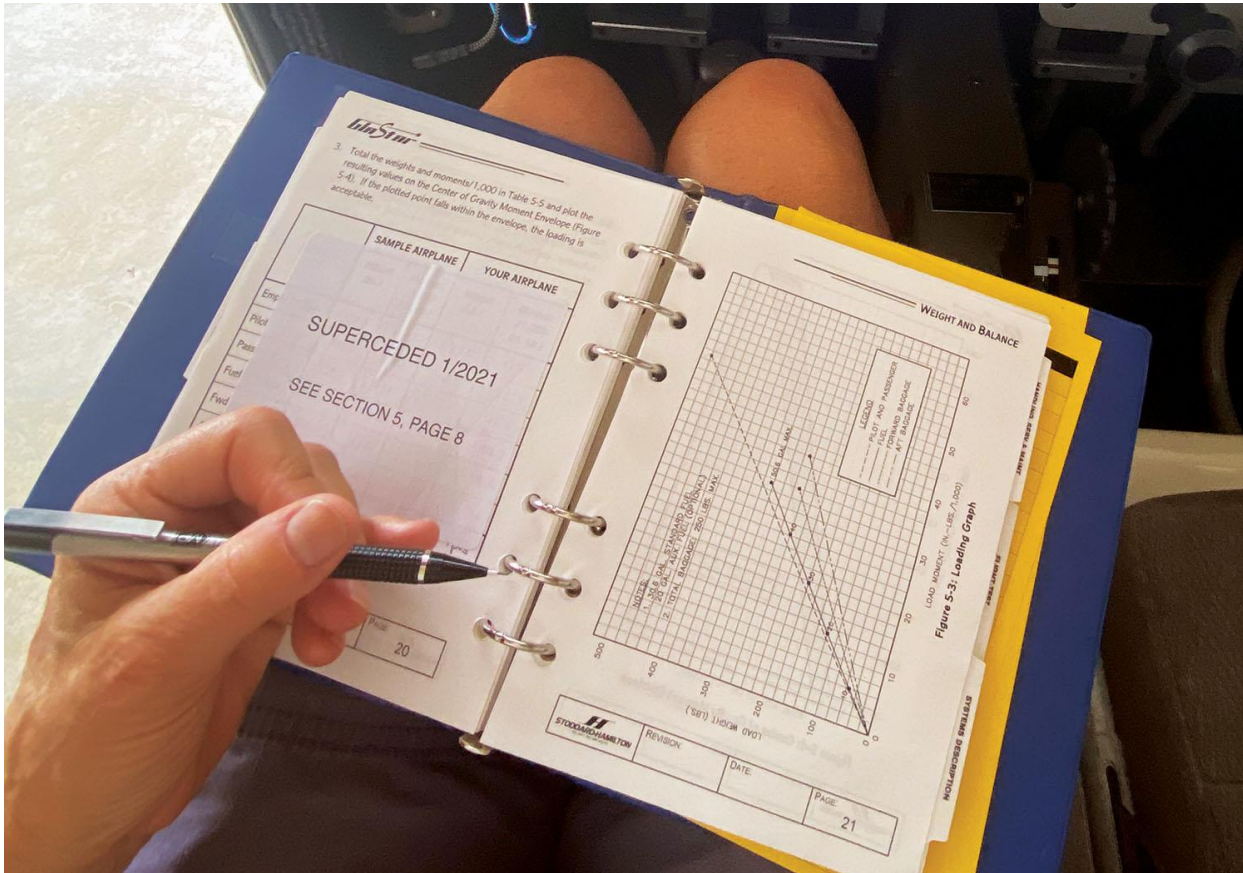 GlaStar
3. Total the weights and moments/1,000 in Table 5-5 and plot the
resulting values on the Center of Gravity Moment Envelope (Figure
5-4). If the plotted point falls within the envelope, the loading is
acceptable.
SAMPLE AIRPLANE
YOUR AIRPLANE
Emp
Pilot
Pass
Fuel
Fwd
SUPERCEDED 1/2021
SEE SECTION 5, PAGE 8
PAGE:
20
WEIGHT AND BALANCE
LEGEND
PILOT AND PASSENGER
FUEL
FORWARD BAGGAGE
AFT BAGGAGE
50.6 GAL MAX.
NOTES:
1. 30.6 GAL. STANDARD FUEL
20 GAL. AUX. FUEL (OPTIONAL)
2. TOTAL BAGGAGE 250 LBS. MAX.
500
400
300
200
100
0
LOAD WEIGHT (LBS.)
0
10
20
30
40
50
60
LOAD MOMENT (IN.-LBS./1,000)
Figure 5-3: Loading Graph
STODDARD-HAMILTON
REVISION:
DATE:
PAGE:
21
HANDLING SERV & MAINT
FLIGHT TEST
SYSTEMS DESCRIPTION